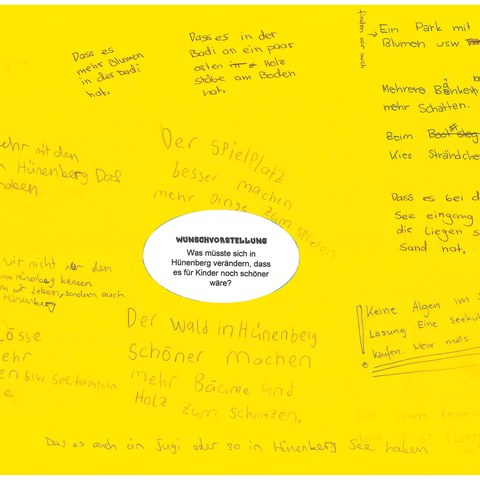 Dass es
mehr Blumen
in der Badi
hat.
Dass es in der
Badi an ein paar
orten Holz
stäbe am Boden
hat.
finden wir auch
Ein Park mit
Blumen usw.
Mehrere Bänken
mehr Schatten.
Beim Boot steg
Kies Strändche
Dass es bei d
See eingang
die liegen s
Sand hat.
ehr mit den
n Hünenberg Dorf
haben
Der Spielplatz
besser machen
mehr Dinge zum spielen
WUNSCHVORSTELLUNG
Was müsste sich in
Hünenberg verändern, dass
es für Kinder noch schöner
wäre?
wir nicht nur den
Hünenberg kennen
leben, sondern auch
Hünenberg
Keine Algen im S
Lasung Eine Seekuh
kaufen.
Der Wald in Hünenberg
schöner machen
mehr Bäume und
Holz zum schnitzen.
lösse
ehr
en bsw
e
Das es auch ein Jugi oder so in Hünenberg See haben